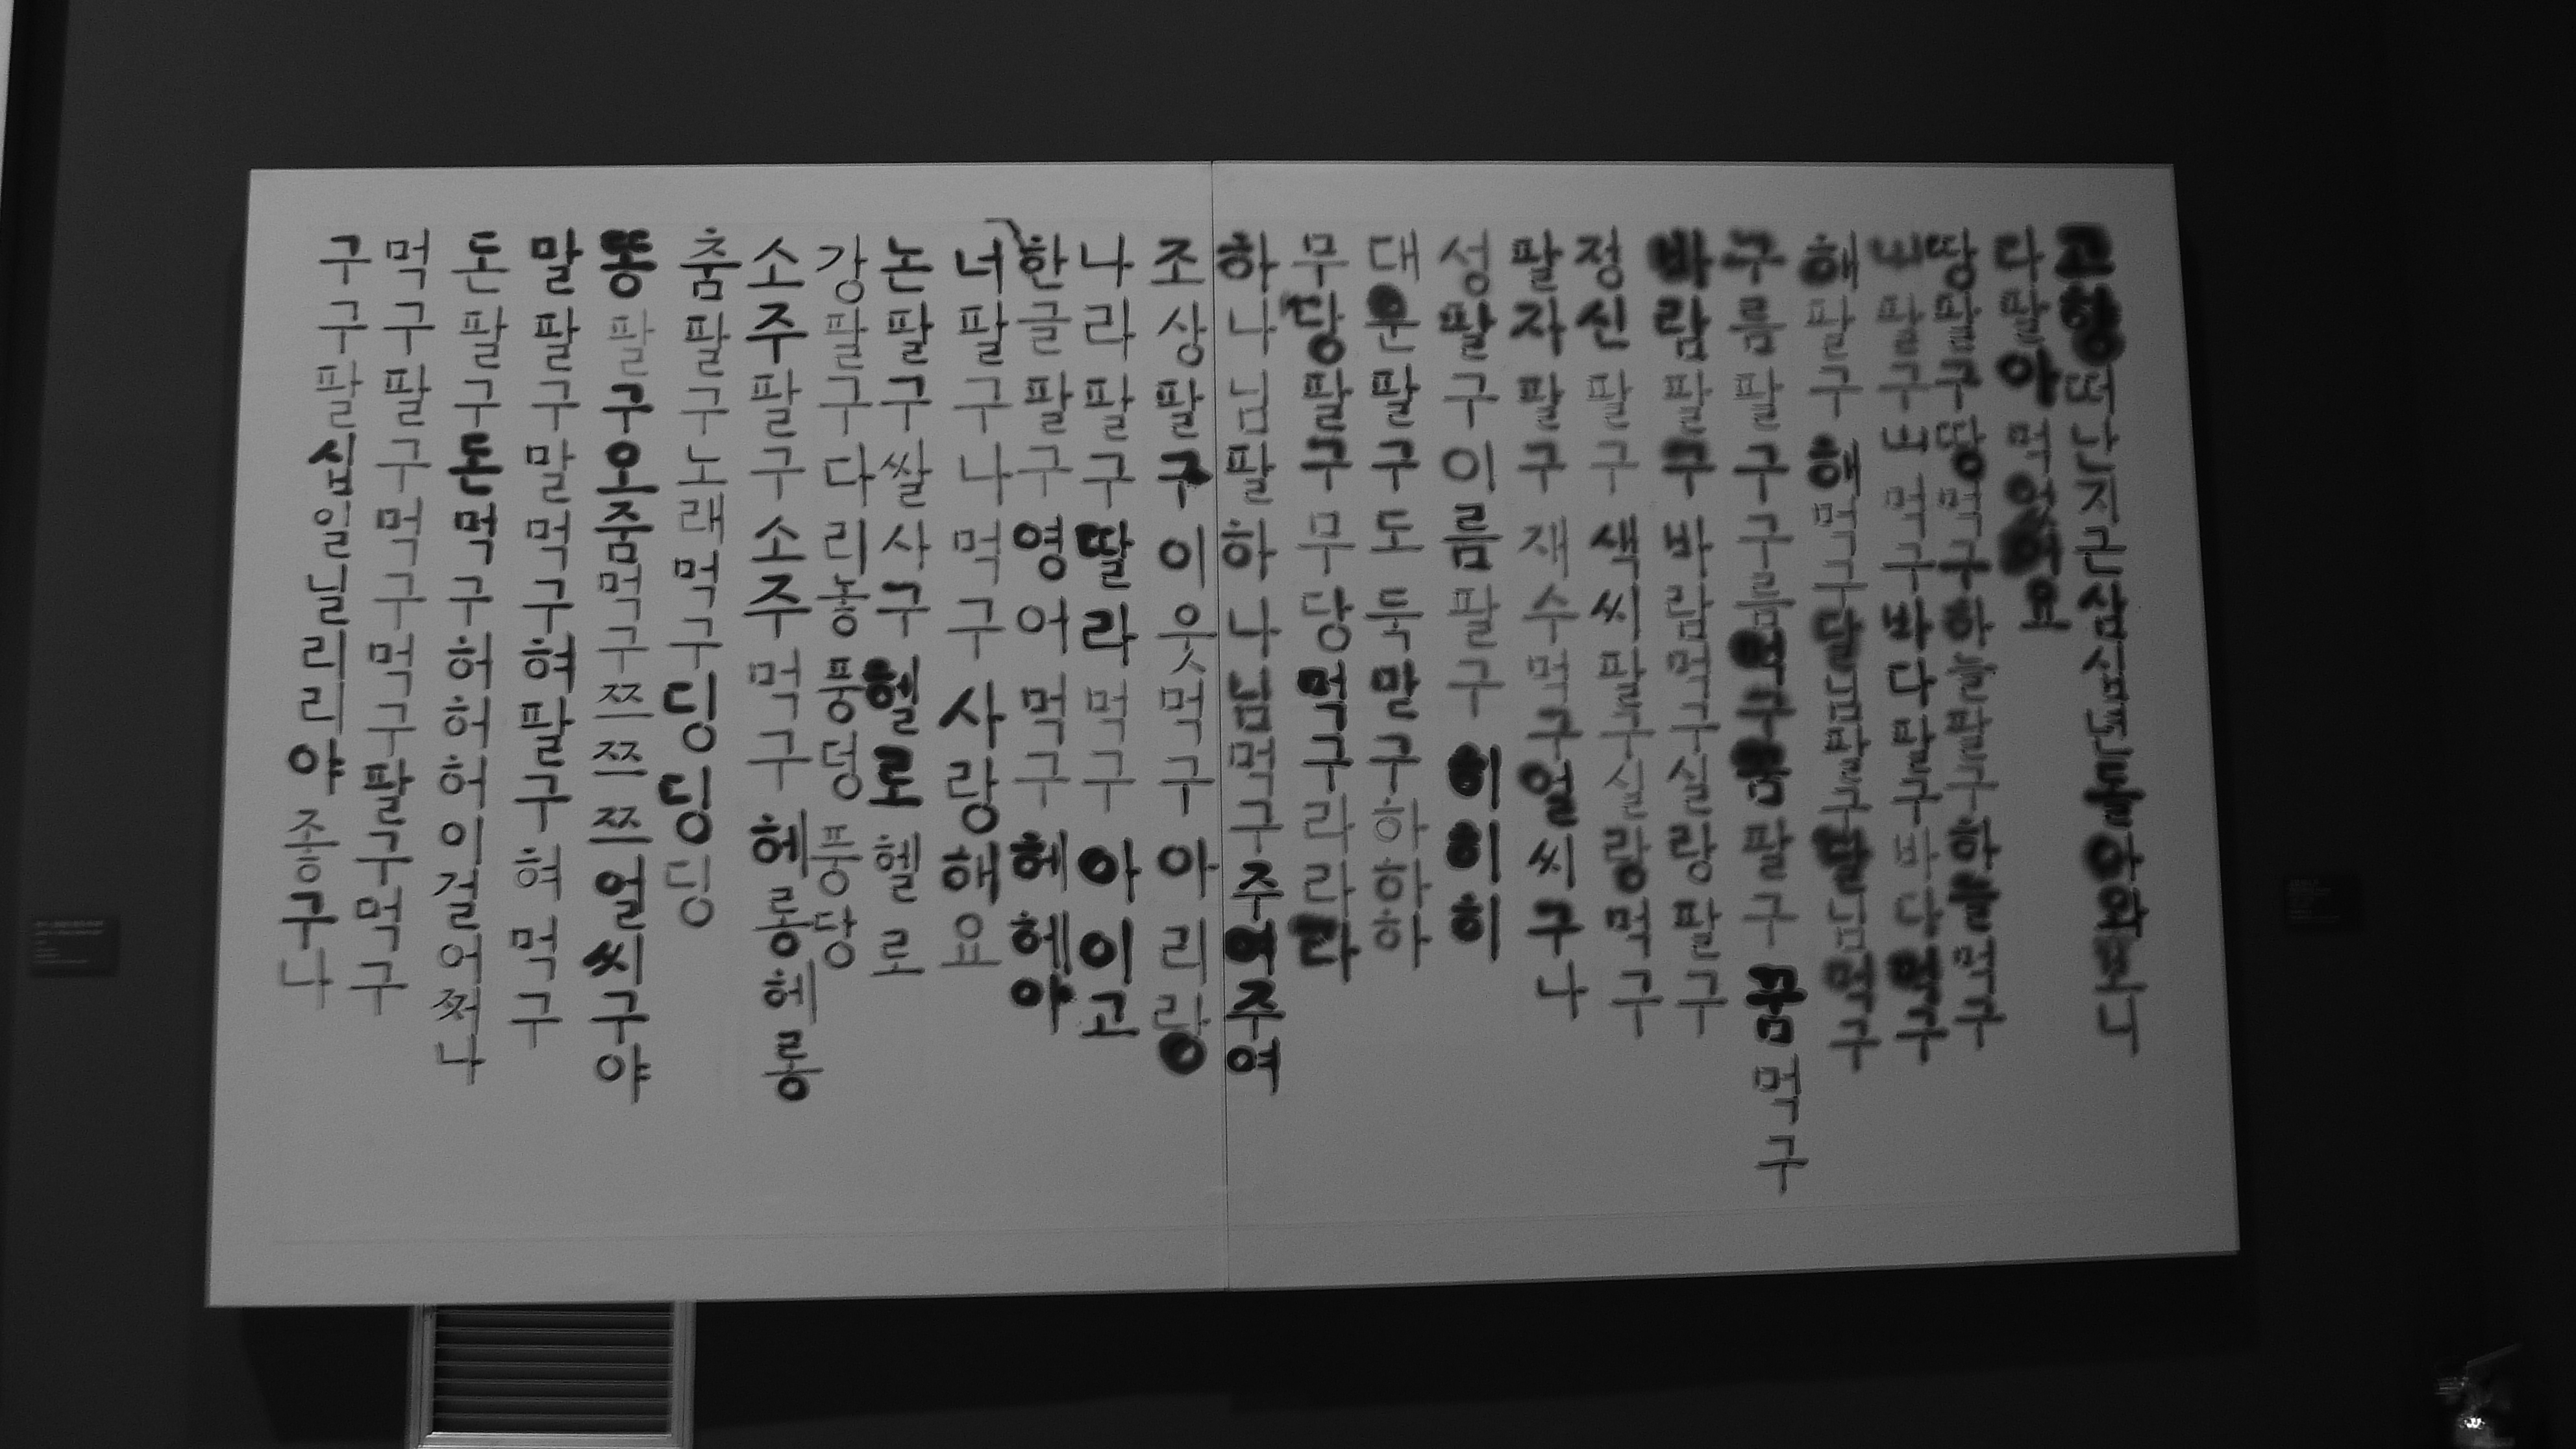 고향떠난지근삼십년만에돌아와보니
라팔아먹었어요
땅팔구땅먹구하늘팔구하늘먹구
뫼팔구뫼먹구바다팔구바다먹구
해팔구해먹구달고팔구달고먹구
구름팔구구름먹구꿈팔구꿈먹구
바람팔구바람먹구실랑팔구
정신팔구색씨팔구실랑먹구
팔자팔구재수먹구얼씨구나
성팔구이름팔구히히히
대운팔구도둑말구하하하
무당팔구무당먹구라라라
하나님팔하나님먹구주여주여
조상팔구이웃먹구아리랑
나라팔구딸라먹구아이고
한글팔구영어먹구헤헤야
너팔구나먹구사랑해요
논팔구쌀사구헬로헬로
강팔구다리놓풍덩풍당
소주팔구소주먹구헤롱헤롱
춤팔구노래먹구딩딩딩
똥팔구오줌먹구쯔쯔쯔얼씨구야
말팔구말먹구혀팔구혀먹구
돈팔구돈먹구허허허이걸어쩌나
먹구팔구먹구먹구팔구먹구
구구팔십일닐리리야좋구나